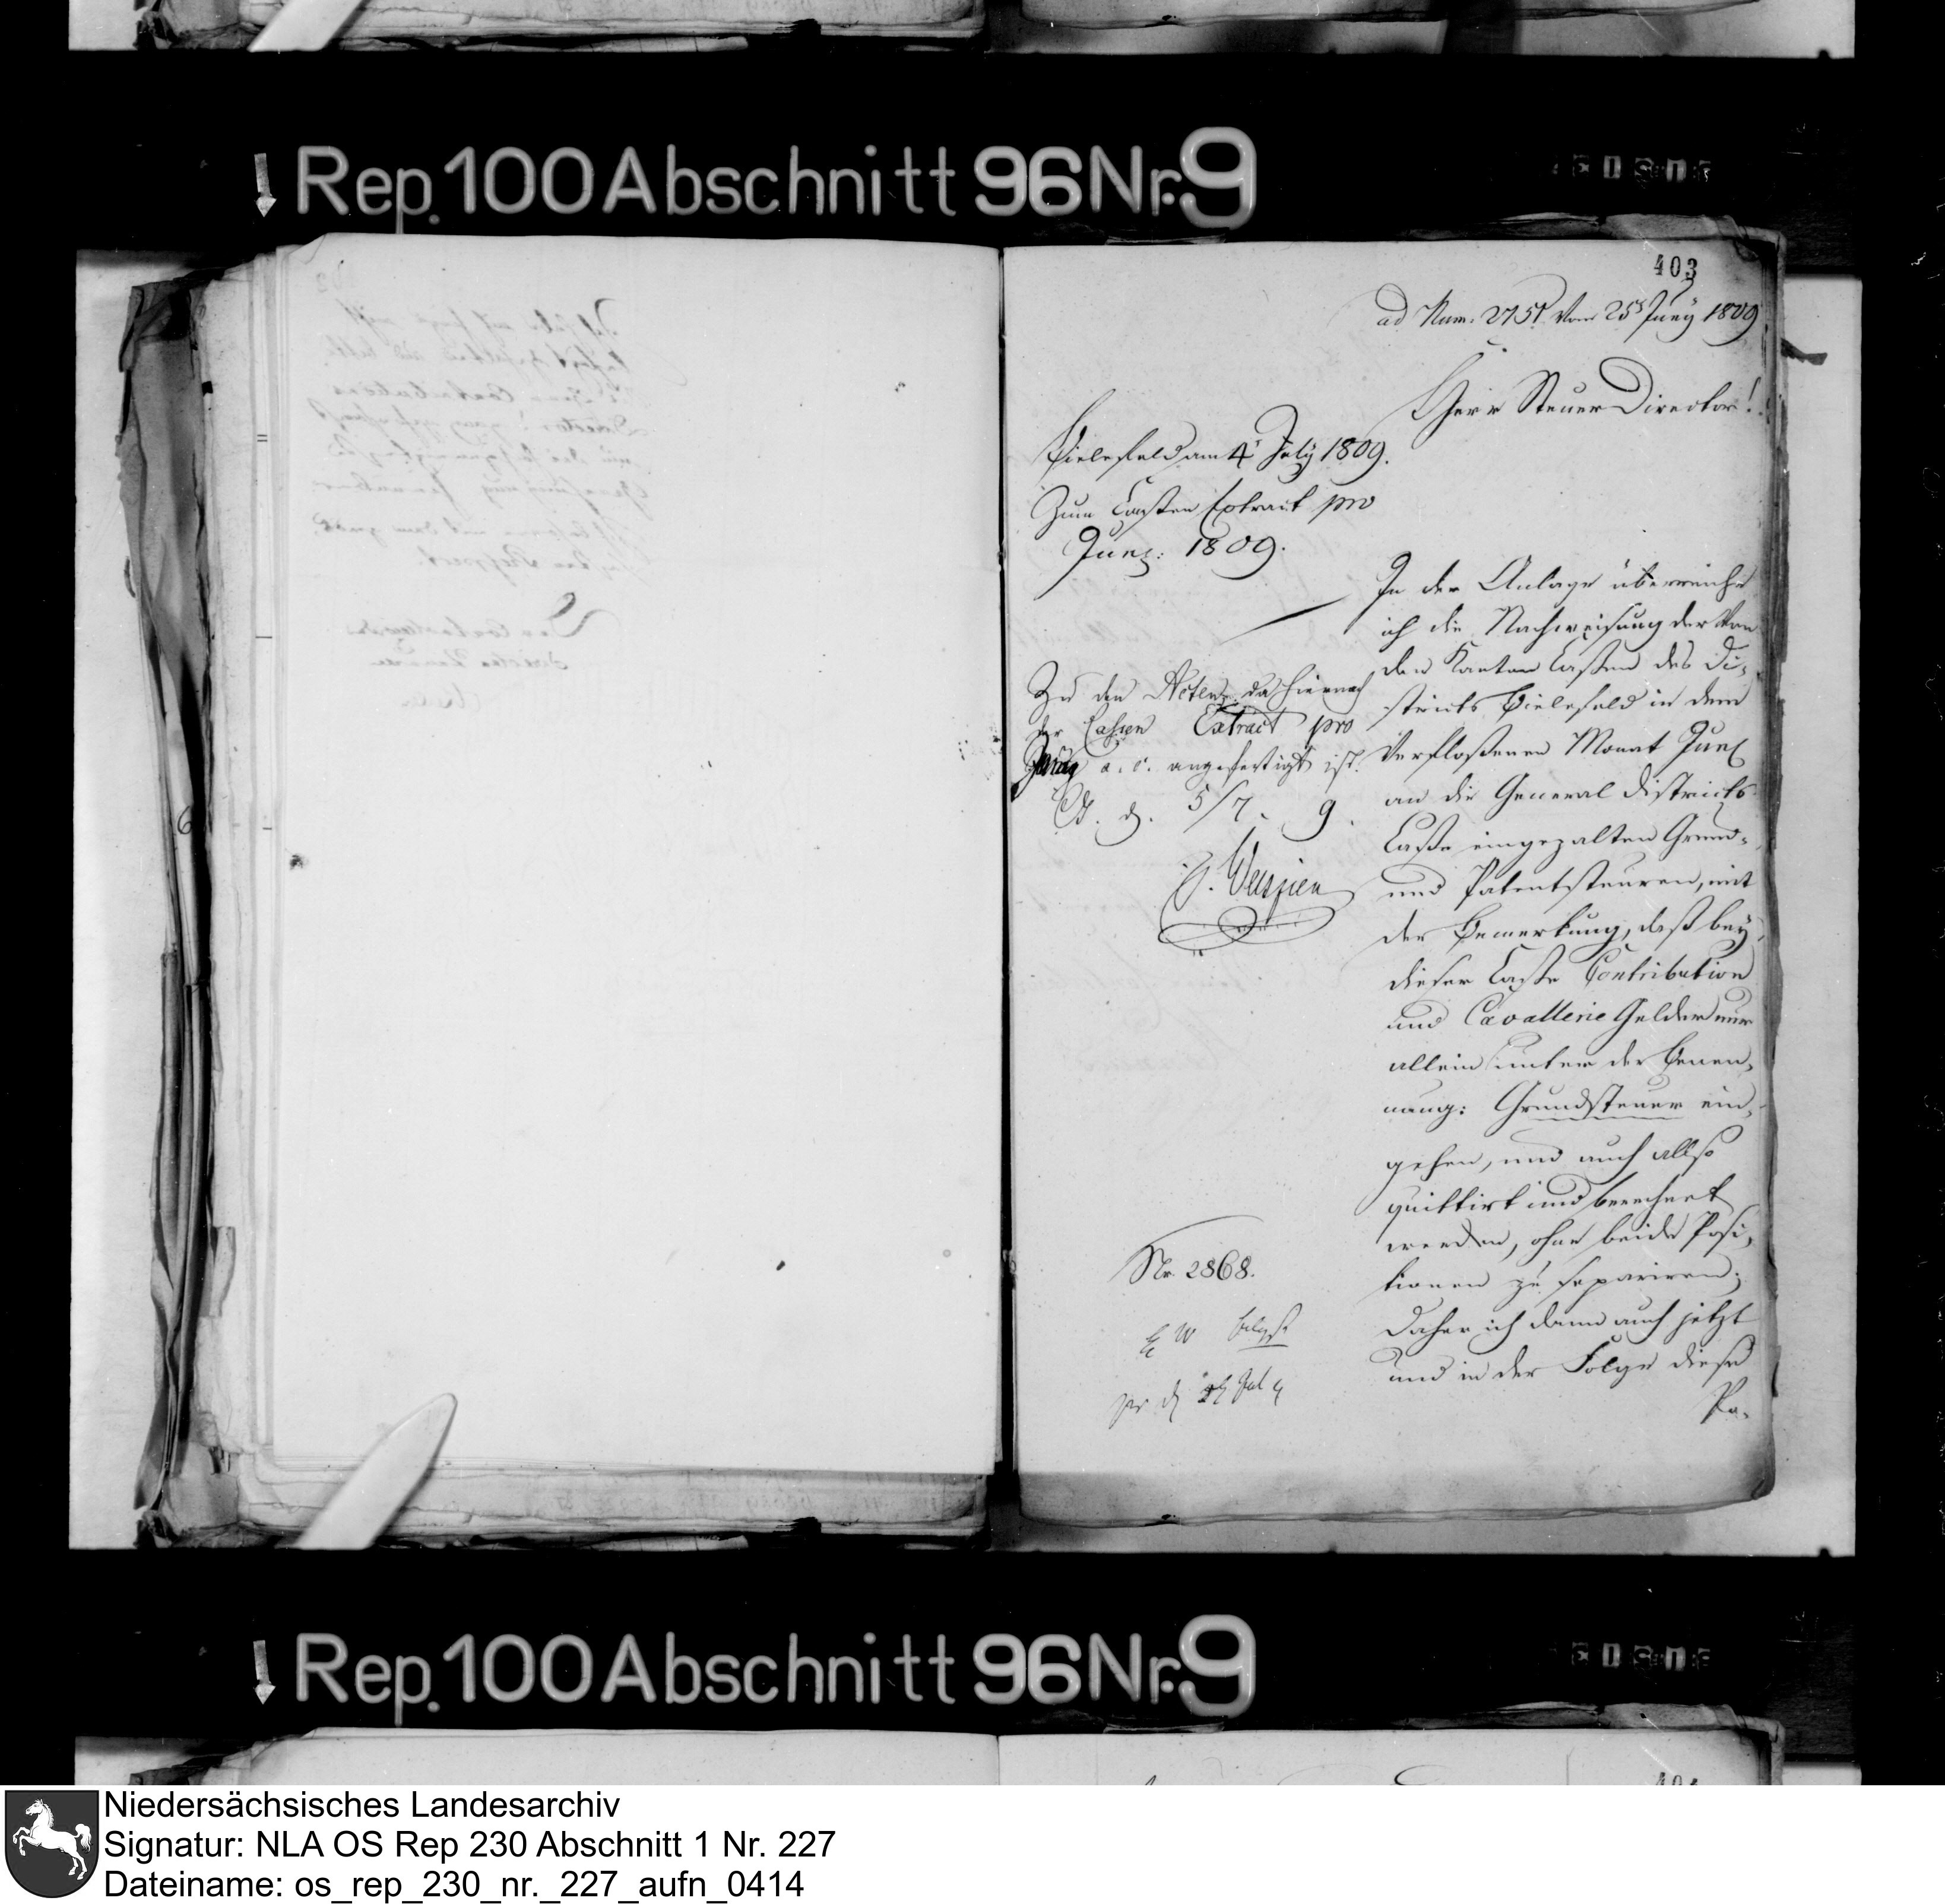 Rep. 100 Abschnitt 96 Nr. 9
403
ad Num: 2751 vom 25t Juny 1809
Herr Steuer Director!
Bielefeld am 4t July 1809.
Zum Cassen Extract pro
Juny: 1809.
In der Anlage überreiche
ich die Nachweisung der von
den Kanton Cassen des Di-
stricts Bielefeld in dem
verfloßenen Monat Juny
an die General Districts
Casse eingezalten Grund-
und Patentsteuren, mit
der Bemerkung, daß bey
dieser Casse Contribution
und Cavallerie Gelder nur
allein unter der Benen-
nung: Grundsteuer ein-
gehen, und auch allso
quittirt und berechnet
werden, ohne beide Posi-
tionen zu separiren;
Daher ich dann auch jetzt
und in der Folge diese
Pa-
Zu den Acten, da hiernach
der Cassen Extract pro
Juny a. c. angefertigt ist.
5/7. 9.
Nr. 2868.
Rep. 100 Abschnitt 96 Nr. 9
Niedersächsisches Landesarchiv
Signatur: NLA OS Rep 230 Abschnitt 1 Nr. 227
Dateiname: os_rep_230_nr._227_aufn_0414